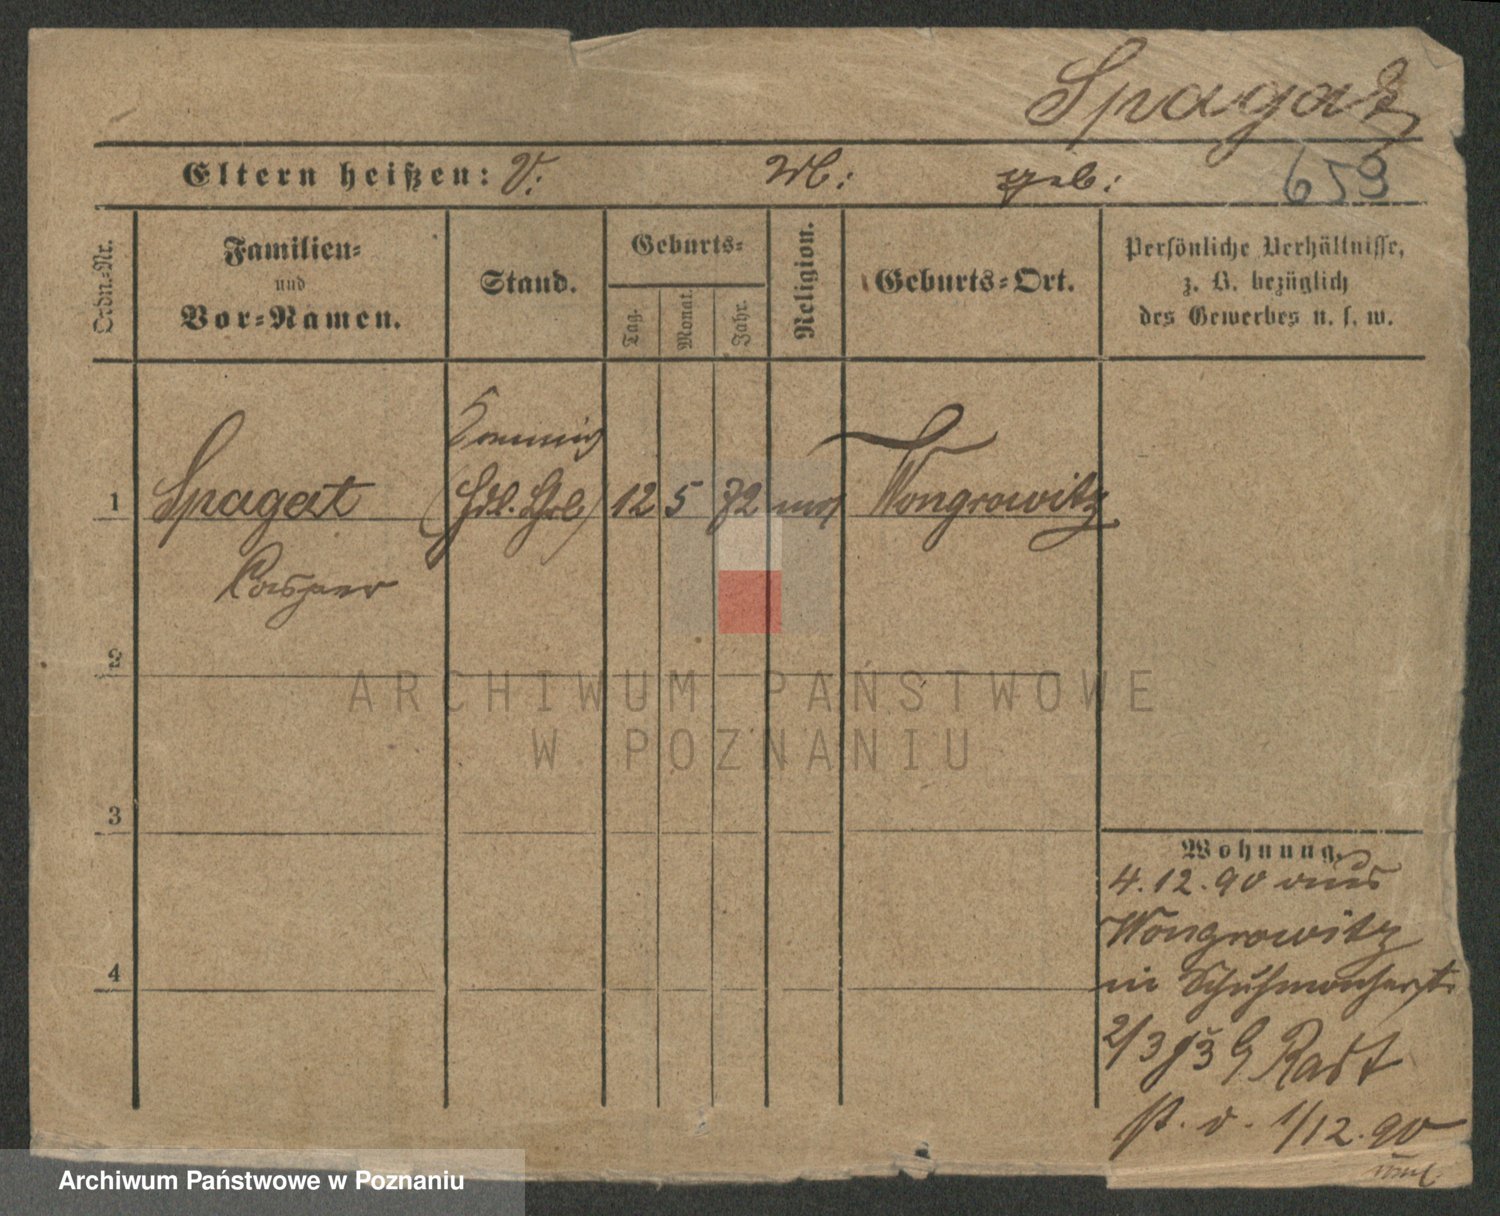 Spagat
Eltern heißen: V: M: geb:
653
Ordn.-Nr.
Familien-
und
Vor-Namen.
Stand.
Geburts-
Tag.
Monat.
Jahr.
Religion.
Geburts-Ort.
Persönliche Verhältnisse,
z. B. bezüglich
des Gewerbes u. s. w.
Commis
1 Spagat (Hdl. 12 5 72 mos Wongrowitz
Casper
2
3
4
Wohnung.
4.12.90 aus
Wongrowitz
in Schuhmacherst.
2/3 b G Radt
P. v. 1/12.90
ARCHIWUM PAŃSTWOWE
W POZNANIU
Archiwum Państwowe w Poznaniu